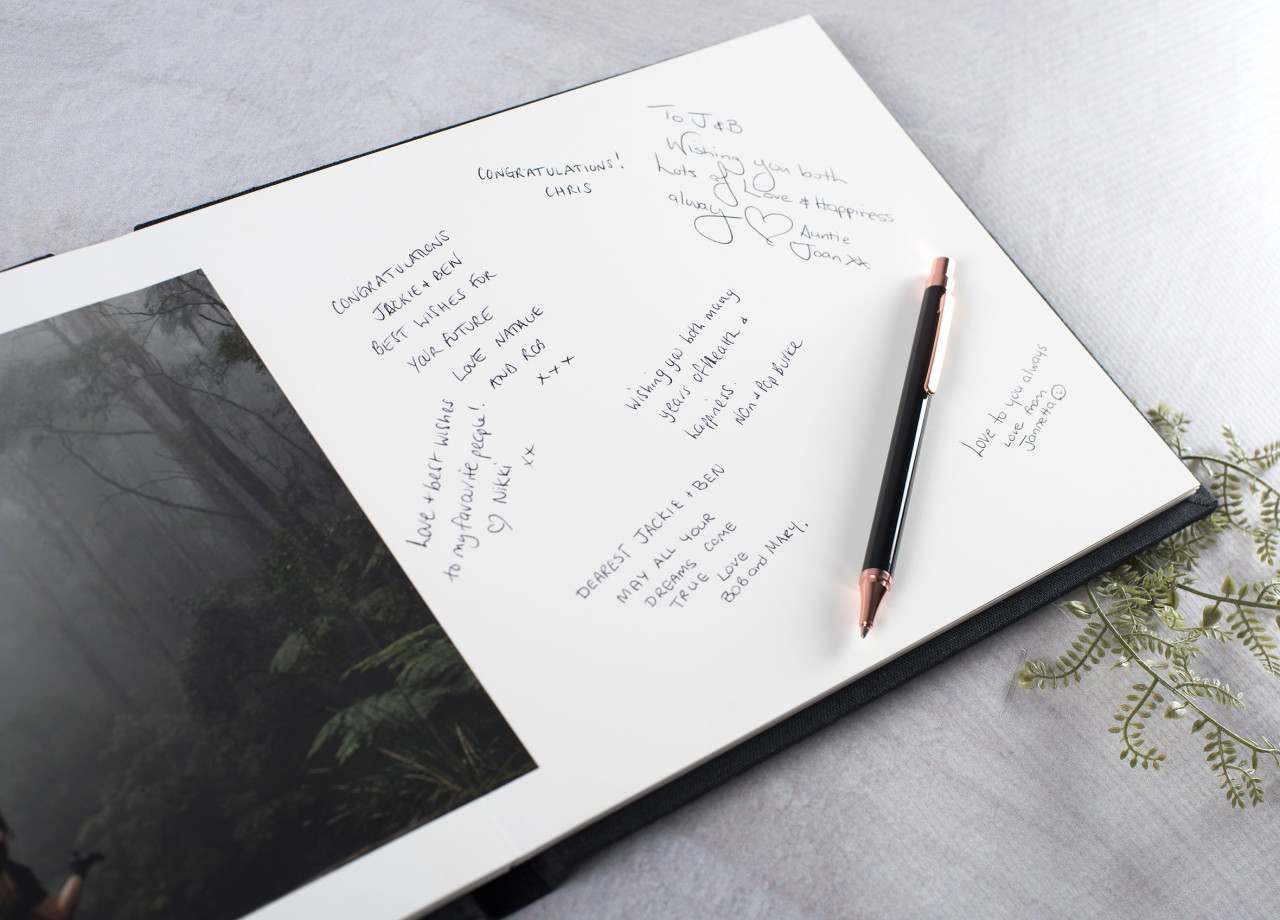 CONGRATULATIONS!
CHRIS
To J & B
Wishing you both
Lots of Love & Happiness
always
Auntie
Joan xx
CONGRATULATIONS
JACKIE + BEN
BEST WISHES FOR
YOUR FUTURE
LOVE NATALIE
AND ROB
x x x
Wishing you both many
years of Health &
happiness.
Nan + Pop Burke
Love to you always
Love from
Jannetta
Love + best wishes
to my favourite people!
Nikki xx
DEAREST JACKIE + BEN
MAY ALL YOUR
DREAMS COME
TRUE LOVE
BOB and MARY.